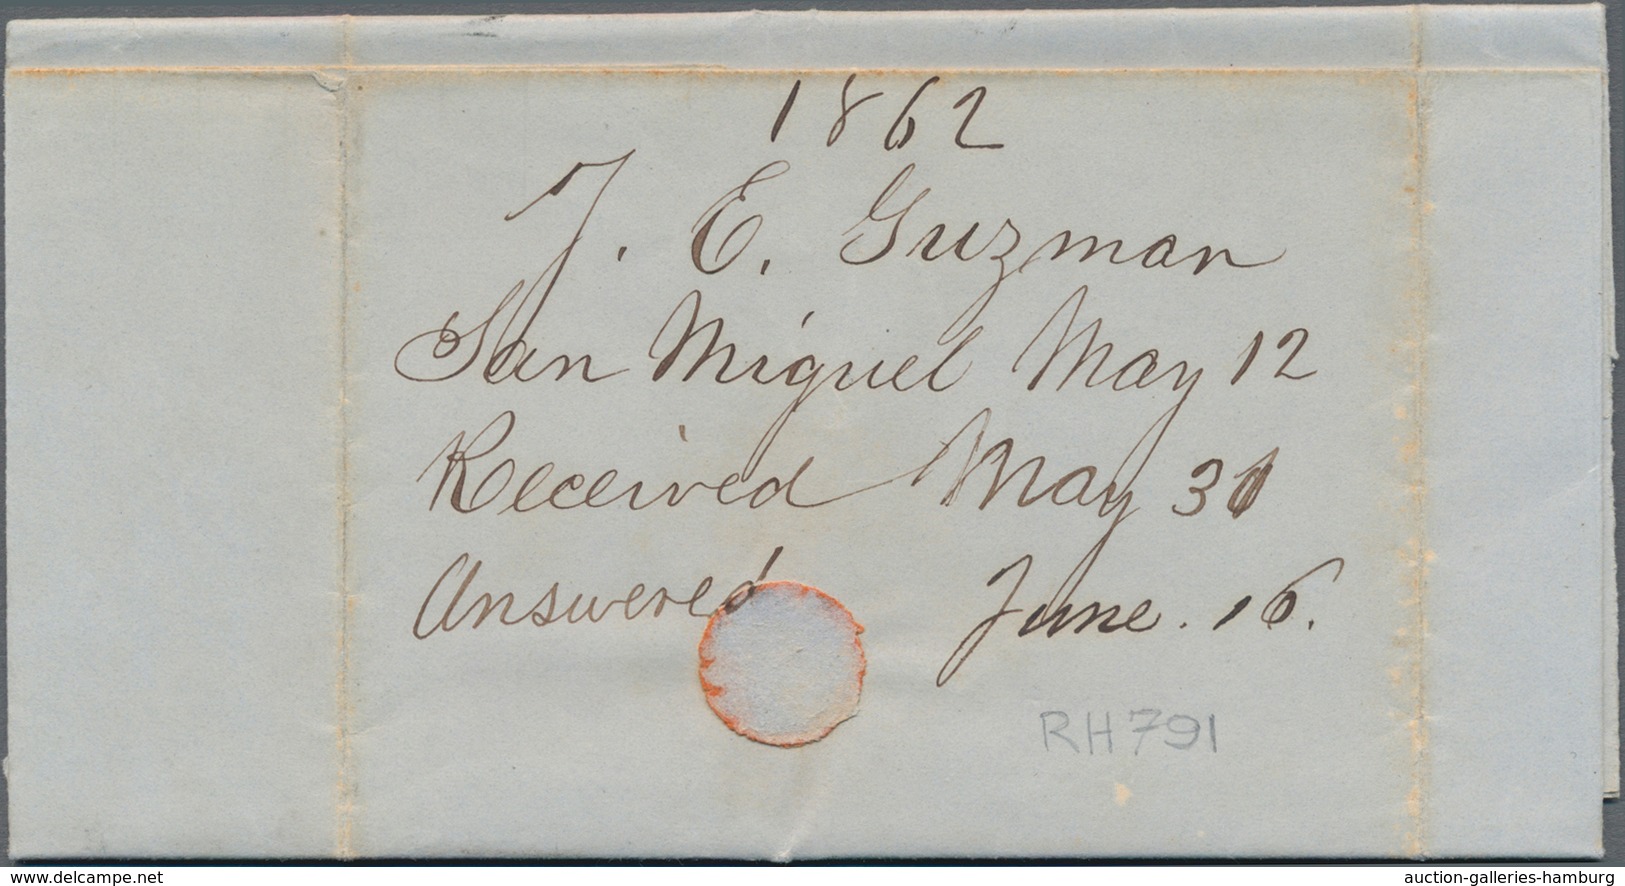 1862
J. E. Guzman
San Miguel May 12
Received May 31
Answered June. 16.
RH791
www.delcampe.net
auction-galleries-hamburg